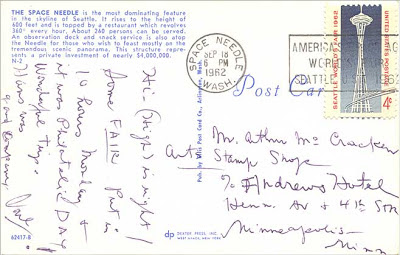 THE SPACE NEEDLE is the most dominating feature
in the skyline of Seattle. It rises to the height of
600 feet and is topped by a restaurant which revolves
360° every hour. About 260 persons can be served.
An observation deck and snack service is also atop
the Needle for those who wish to feast mostly on the
tremendous scenic panorama. This structure repre-
sents a private investment of nearly $4,000,000.
N-2
Hi - (High) is right!
Some FAIR. Put in
10 hours Monday &
it was Philatelic DAY
Wonderful trip.
62417-B
Pub. by Ellis Post Card Co., Arlington, Wash.
DEXTER PRESS, INC.
WEST NYACK, NEW YORK
dp
SPACE NEEDLE
SEP 18
6 PM
1962
WASH.
AMERICA'S
WORLD'S
SEATTLE
SEATTLE WORLD'S FAIR 1962
UNITED STATES POSTAGE
4¢
Post Card
Mr. Arthur Mc Cracken
Stamp Shope
% Andrews Hotel
Henn. Av & 4th St
Minneapolis
Minn